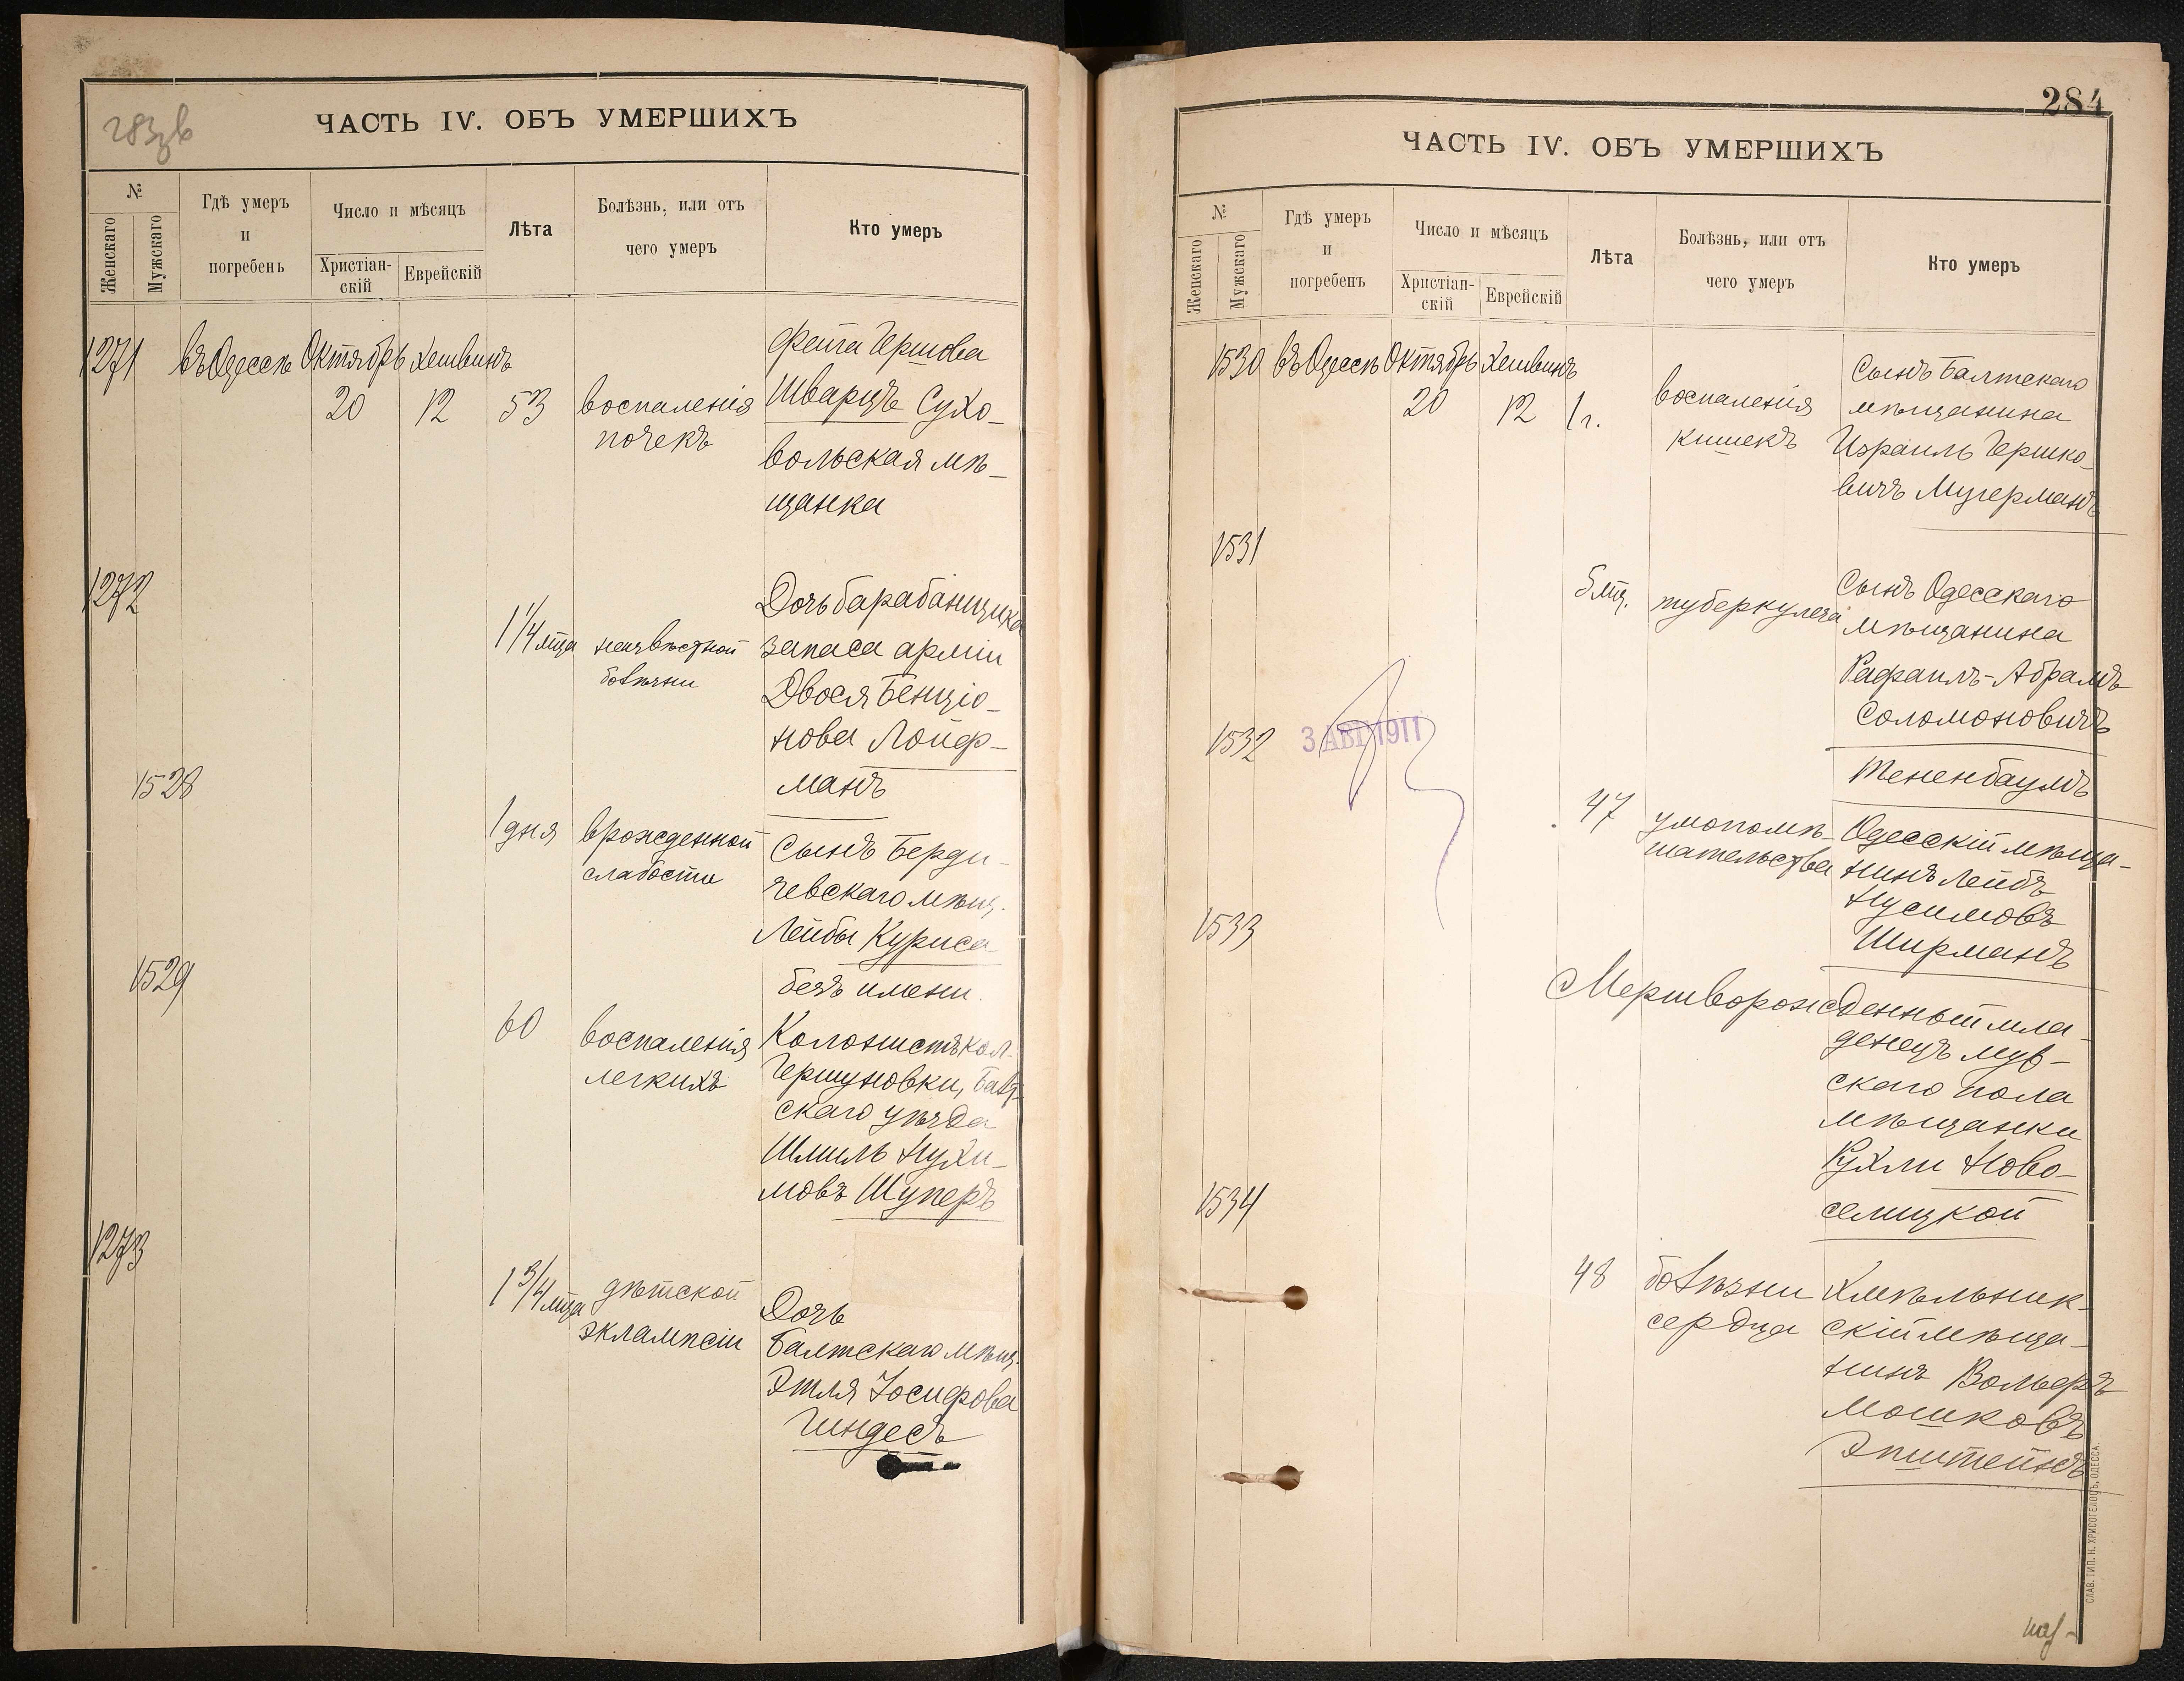 283зв
ЧАСТЬ IV. ОБЪ УМЕРШИХЪ
№
Женскаго
Мужскаго
Гдѣ умеръ
и
погребенъ
Число и мѣсяцъ
Христіан-
скій
Еврейскій
Лѣта
Болѣзнь, или отъ
чего умеръ
Кто умеръ
1271 въ Одессѣ Октябрь Хешвинъ
20 12 53 воспаленія
почекъ
Фейга Гершова
Шварцъ Сухо-
вольская мѣ-
щанка
1272
1 1/4 мца неизвѣстной
болѣзни
Дочь барабанщика
запаса арміи
Двося Бенціо-
нова Лойф-
манъ
1528
1 дня врожденной
слабости
Сынъ Берди-
чевскаго мѣщ.
Лейбы Куриса
безъ имени
1529
60 воспаленія
легкихъ
Колонистъ кол.
Гершуновки, Балт-
скаго уѣзда
Шмиль Нухи-
мовъ Шуперъ
1273
1 3/4 мца дѣтской
эклампсіи
Дочь
Балтскаго мѣщ.
Этля Іосифова
Гиндесъ
284
ЧАСТЬ IV. ОБЪ УМЕРШИХЪ
№
Женскаго
Мужскаго
Гдѣ умеръ
и
погребенъ
Число и мѣсяцъ
Христіан-
скій
Еврейскій
Лѣта
Болѣзнь, или отъ
чего умеръ
Кто умеръ
1530 въ Одессѣ Октябрь Хешвинъ
20 12 1 г.
воспаленія
кишекъ
Сынъ Балтскаго
мѣщанина
Израиль Гершко-
вичъ Мугерманъ
1531
туберкулеза
Сынъ Одесскаго
мѣщанина
Рафаилъ-Абрамъ
Соломоновичъ
Тененбаумъ
1532
3 АВГ 1911
47 умопомѣ-
шательства
Одесскій мѣща-
нинъ Лейбъ
Нусимовъ
Ширманъ
1533
Мертворожденный мла-
денецъ муж-
скаго пола
мѣщанки
Рухли Ново-
селицкой
1534
48 болѣзни
сердца
Хмѣльник-
скій мѣща-
нинъ Вольфъ
Мошковъ
Эпштейнъ
СЛАВ. ТИП. Н. ХРИСОГЕЛОСЪ, ОДЕССА.